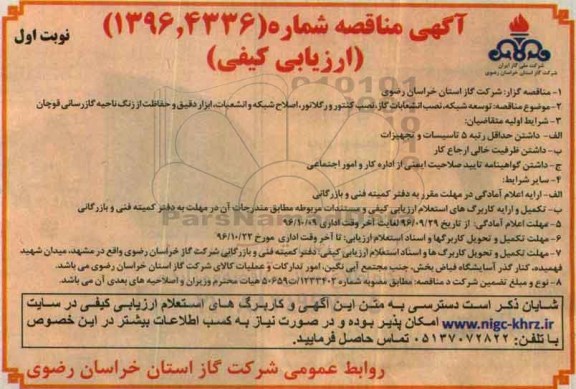 آگهی مناقصه شماره(۱۳۹۶,۴۳۳۶)
(ارزیابی کیفی)
نوبت اول
شرکت ملی گاز ایران
شرکت گاز استان خراسان رضوی
۱- مناقصه گزار: شرکت گاز استان خراسان رضوی
۲- موضوع مناقصه: توسعه شبکه، نصب انشعابات گاز، نصب کنتور و رگلاتور، اصلاح شبکه و انشعابات، ابزار دقیق و حفاظت از زنگ ناحیه گازرسانی قوچان
۳- شرایط اولیه متقاضیان:
الف- داشتن حداقل رتبه ۵ تاسیسات و تجهیزات
ب- داشتن ظرفیت خالی ارجاع کار
ج- داشتن گواهینامه تایید صلاحیت ایمنی از اداره کار و امور اجتماعی
۴- سایر شرایط:
الف- ارایه اعلام آمادگی در مهلت مقرر به دفتر کمیته فنی و بازرگانی
ب- تکمیل و ارایه کاربرگ های استعلام ارزیابی کیفی و مستندات مربوطه مطابق مندرجات آن در مهلت به دفتر کمیته فنی و بازرگانی
۵- مهلت اعلام آمادگی: از تاریخ ۹۶/۰۹/۲۹ لغایت آخر وقت اداری ۹۶/۱۰/۰۹
۶- مهلت تکمیل و تحویل کاربرگها و اسناد استعلام ارزیابی: تا آخر وقت اداری مورخ ۹۶/۱۰/۲۳
۷- مهلت تکمیل و تحویل کاربرگها و اسناد استعلام ارزیابی کیفی: دفتر کمیته فنی و بازرگانی شرکت گاز استان خراسان رضوی واقع در مشهد، میدان شهید
فهمیده، کنار گذر آسایشگاه فیاض بخش، جنب مجتمع آبی نگین، امور تدارکات و عملیات کالای شرکت گاز استان خراسان رضوی می باشد.
۸- نوع و مبلغ تضمین شرکت در مناقصه: مطابق مصوبه شماره ۱۲۳۴۰۲/ت۵۰۶۵۹ه هیات محترم وزیران و اصلاحیه های بعدی آن می باشد.
شایان ذکر است دسترسی به متن این آگهی و کاربرگ های استعلام ارزیابی کیفی در سایت
www.nigc-khrz.ir امکان پذیر بوده و در صورت نیاز به کسب اطلاعات بیشتر در این خصوص
با تلفن: ۰۵۱۳۷۰۷۲۸۲۲ تماس حاصل فرمایید.
روابط عمومی شرکت گاز استان خراسان رضوی